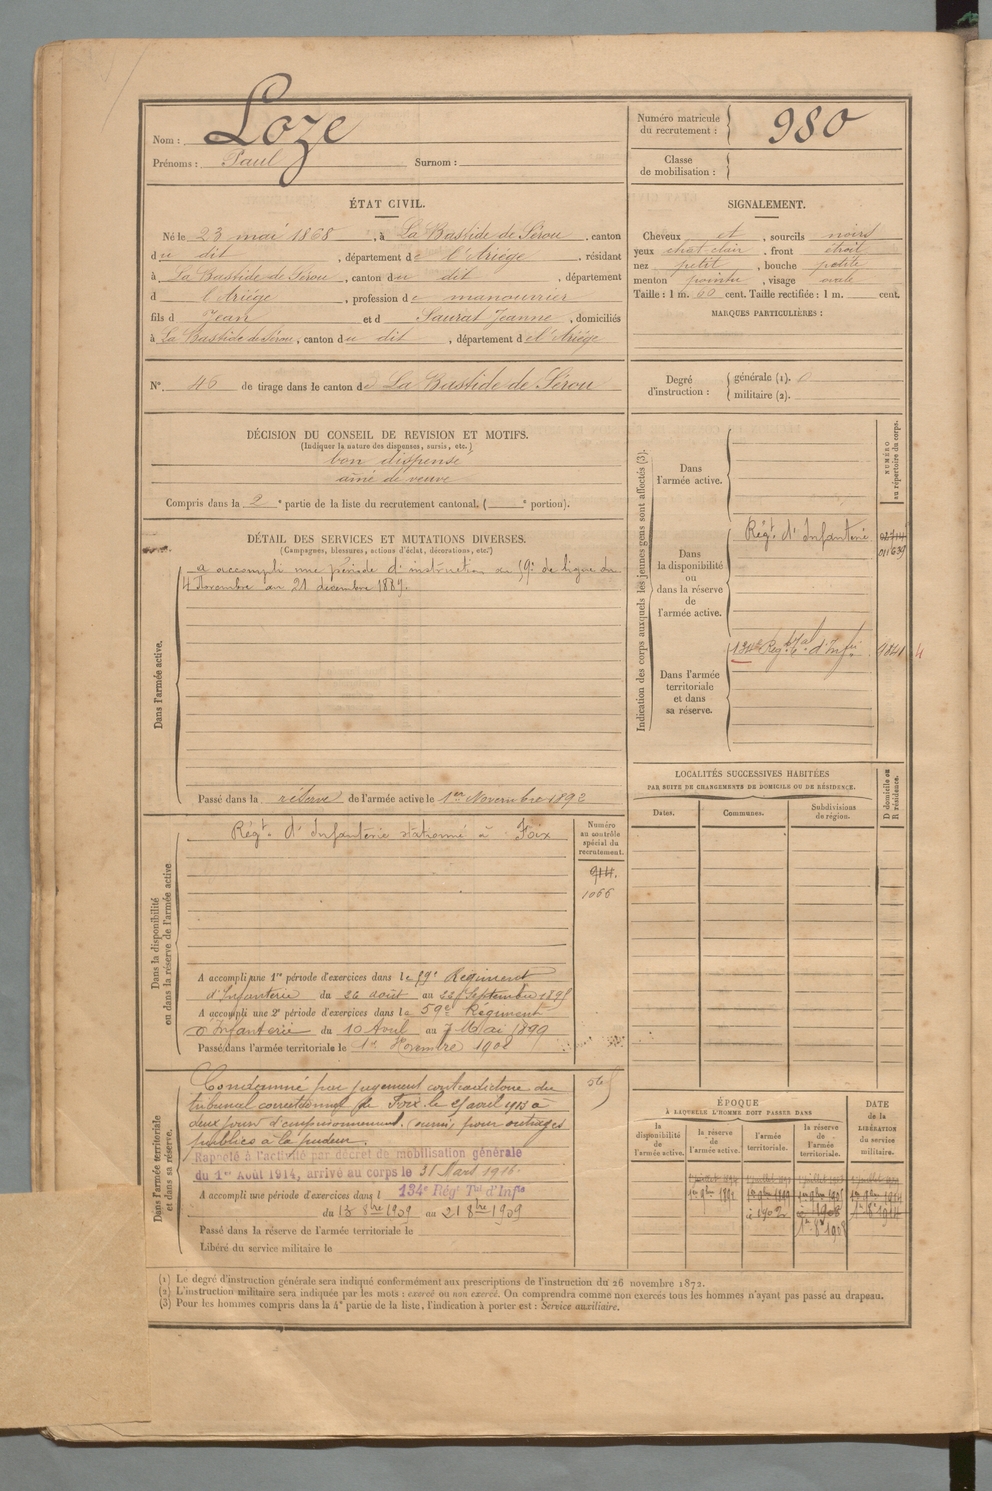 Nom : Loze
Prénoms : Paul Surnom :
Numéro matricule du recrutement : 980
Classe de mobilisation :
ÉTAT CIVIL.
Né le 23 mai 1868, à La Bastide de Sérou, canton
du dit, département de l'Ariége, résidant
à La Bastide de Sérou, canton du dit, département
d l'Ariége, profession de manouvrier
fils d Jean et d Saurat Jeanne, domiciliés
à La Bastide de Sérou, canton du dit, département de l'Ariége
SIGNALEMENT.
Cheveux et, sourcils noirs
yeux chat clair, front étroit
nez petit, bouche petite
menton pointu, visage ovale
Taille : 1 m. 60 cent. Taille rectifiée : 1 m. cent.
MARQUES PARTICULIÈRES :
N° 46 de tirage dans le canton de La Bastide de Sérou
Degré d'instruction : générale (1). 0
militaire (2).
DÉCISION DU CONSEIL DE REVISION ET MOTIFS.
(Indiquer la nature des dispenses, sursis, etc.)
bon dispensé
aîné de veuve
Compris dans la 2e partie de la liste du recrutement cantonal. ( e portion).
DÉTAIL DES SERVICES ET MUTATIONS DIVERSES.
(Campagnes, blessures, actions d'éclat, décorations, etc.)
Dans l'armée active.
a accompli une période d'instruction au 59e de ligne du
4 Novembre au 21 décembre 1889.
Passé dans la réserve de l'armée active le 1er Novembre 1892
Indication des corps auxquels les jeunes gens sont affectés (3).
NUMÉRO au répertoire du corps.
Dans l'armée active.
Dans la disponibilité ou dans la réserve de l'armée active.
Régt. d'Infanterie
Dans l'armée territoriale et dans sa réserve.
134e Régt Tal d'Infie
LOCALITÉS SUCCESSIVES HABITÉES
PAR SUITE DE CHANGEMENTS DE DOMICILE OU DE RÉSIDENCE.
D domicile ou R résidence.
Dates. Communes. Subdivisions de région.
Dans la disponibilité ou dans la réserve de l'armée active
Régt. d'Infanterie stationné à Foix
Numéro au contrôle spécial du recrutement.
914.
1066
A accompli une 1re période d'exercices dans le 59e Régiment
d'Infanterie du 26 août au 22 Septembre 1895
A accompli une 2e période d'exercices dans le 59e Régiment
d'Infanterie du 10 Avril au 7 Mai 1899
Passé dans l'armée territoriale le 1er Novembre 1902
Dans l'armée territoriale et dans sa réserve.
Condamné par jugement contradictoire du
tribunal correctionnel de Foix le 25 avril 1903 à
deux jours d'emprisonnement. (oumis) pour outrages
publics à la pudeur.
Rappelé à l'activité par décret de mobilisation générale
du 1er Août 1914, arrivé au corps le 31 Mars 1916.
A accompli une période d'exercices dans l 134e Régt Tal d'Infie
du 13 8bre 1909 au 21 8bre 1909
Passé dans la réserve de l'armée territoriale le
Libéré du service militaire le
ÉPOQUE
À LAQUELLE L'HOMME DOIT PASSER DANS
DATE de la LIBÉRATION du service militaire.
la disponibilité de l'armée active.
la réserve de l'armée active.
l'armée territoriale.
la réserve de l'armée territoriale.
(1) Le degré d'instruction générale sera indiqué conformément aux prescriptions de l'instruction du 26 novembre 1872.
(2) L'instruction militaire sera indiquée par les mots : exercé ou non exercé. On comprendra comme non exercés tous les hommes n'ayant pas passé au drapeau.
(3) Pour les hommes compris dans la 4e partie de la liste, l'indication à porter est : Service auxiliaire.